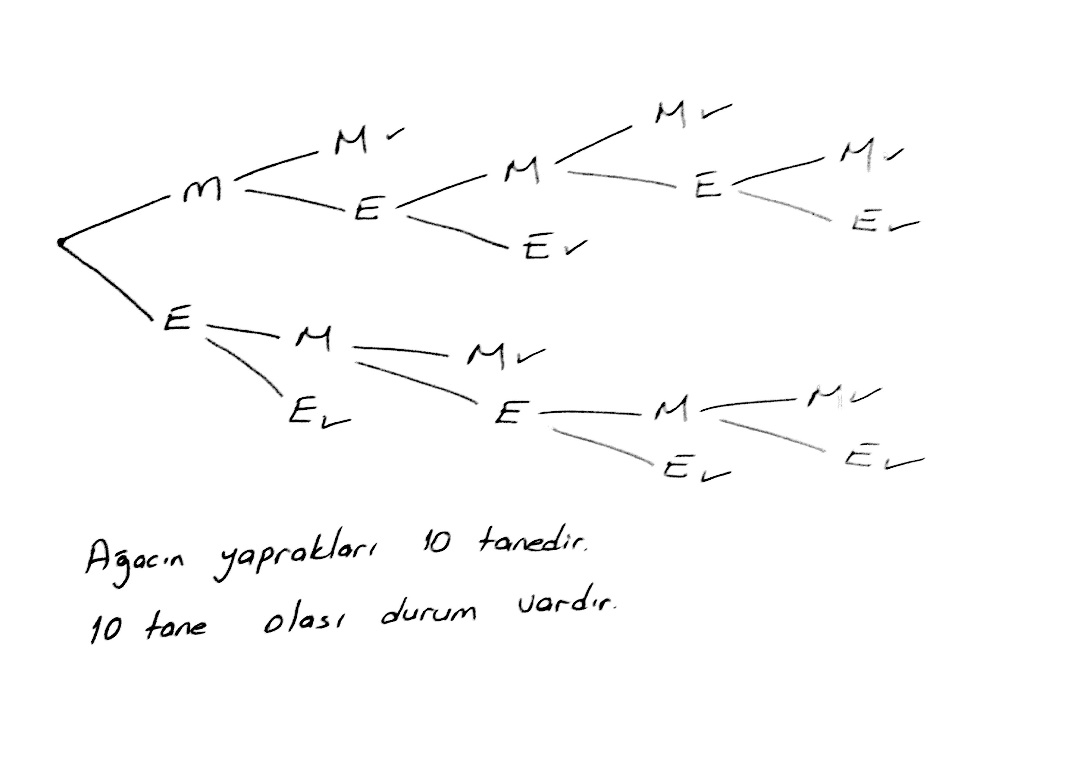 M ✓
M ✓
M
M ✓
m
E
E
E ✓
E ✓
E
M
M ✓
M ✓
E ✓
E
M
E ✓
E ✓
Ağacın yaprakları 10 tanedir.
10 tane olası durum vardır.